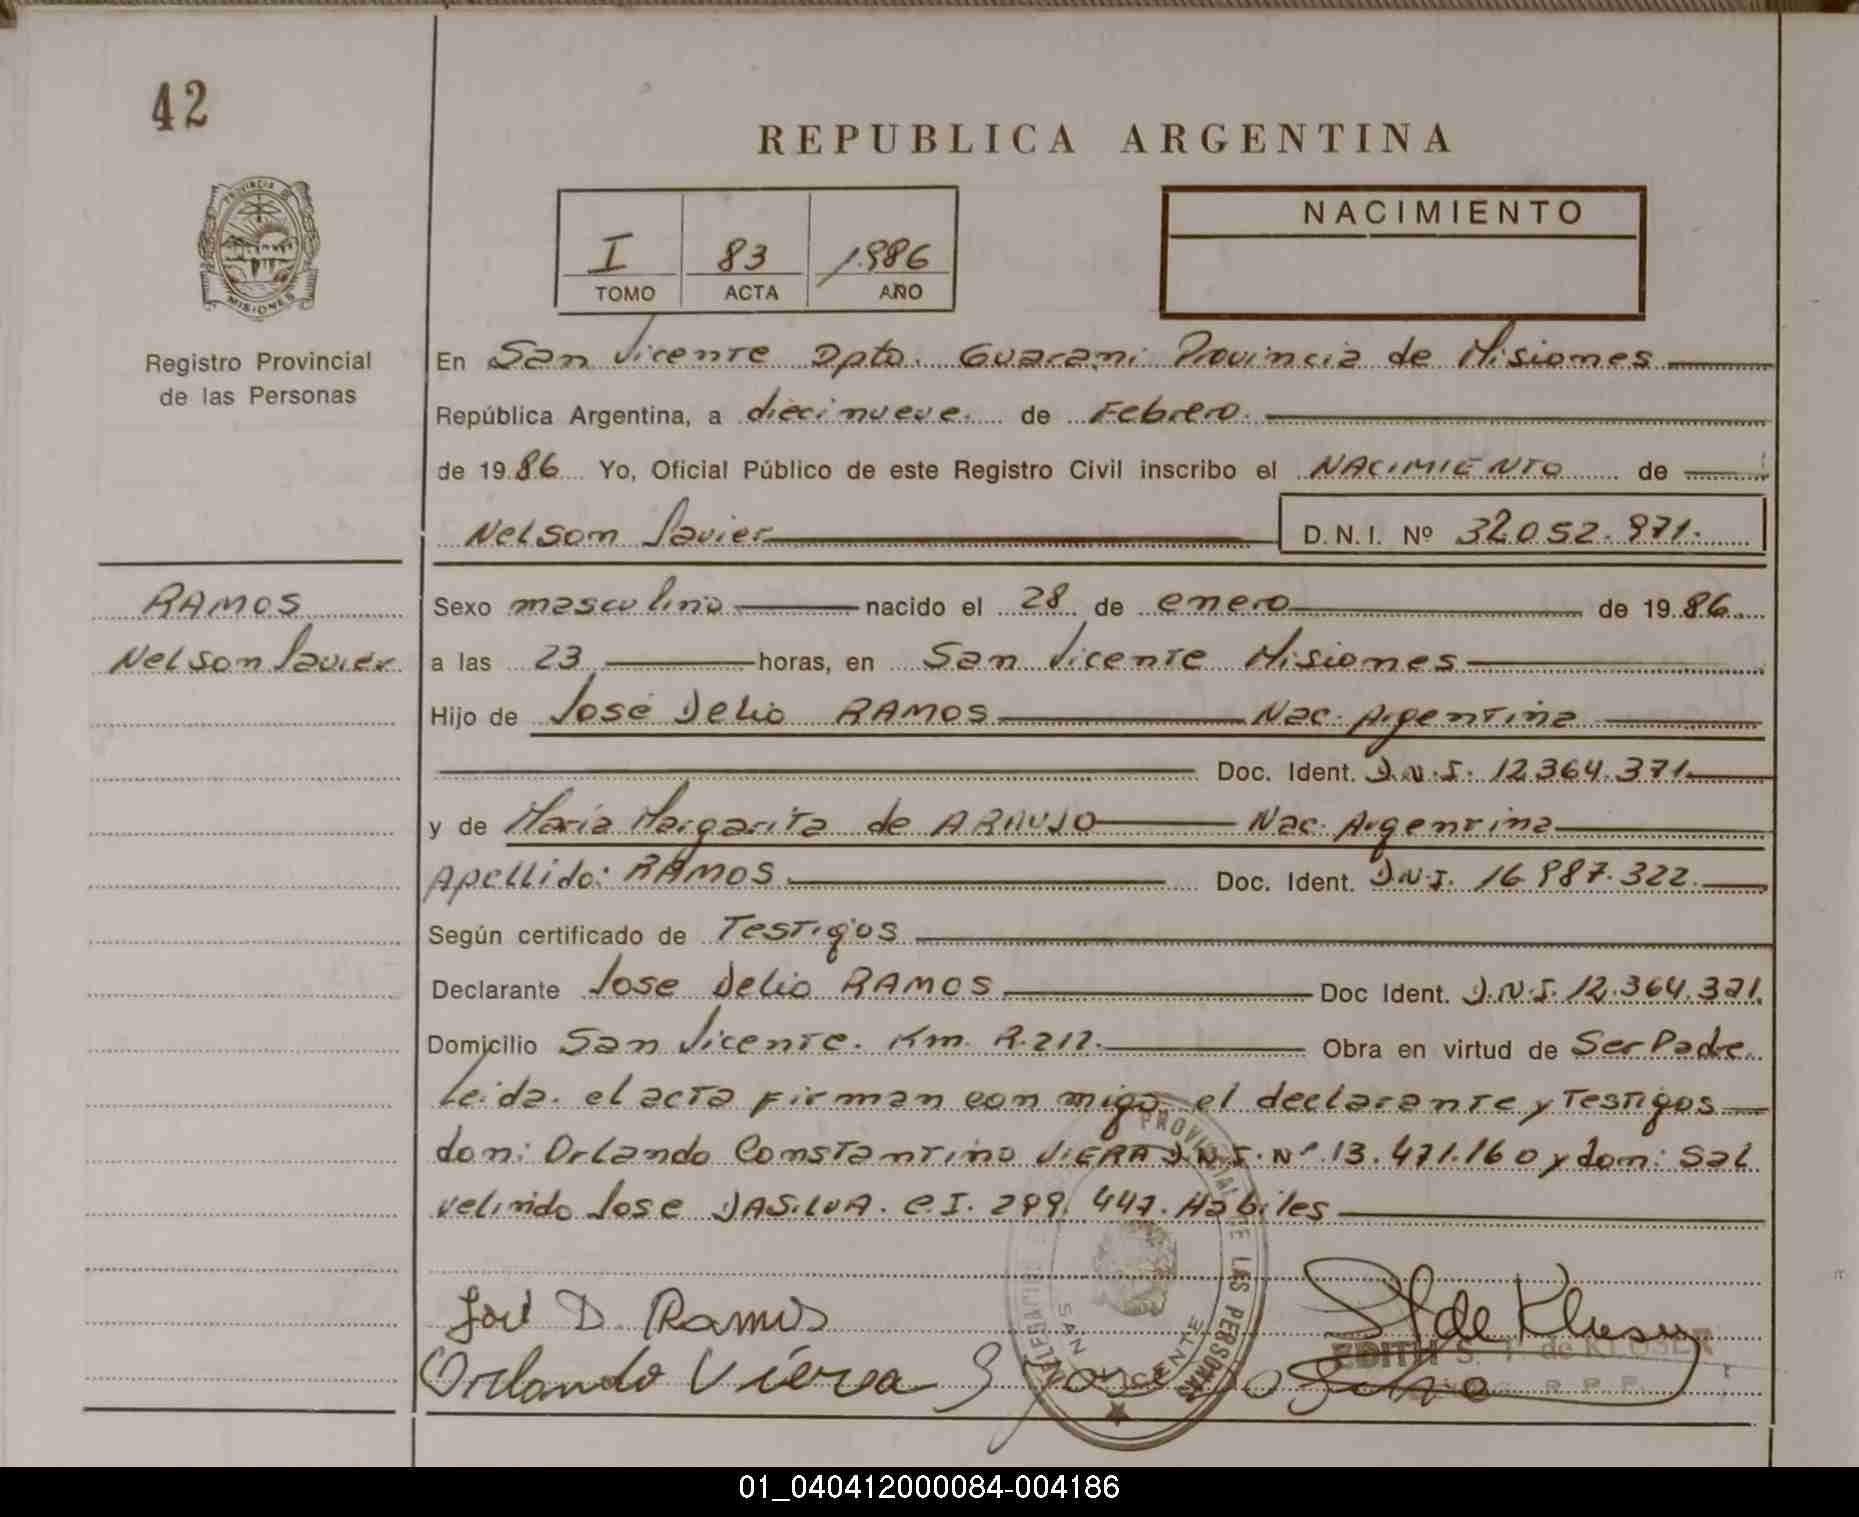 42
REPUBLICA ARGENTINA
PROVINCIA DE
MISIONES
Registro Provincial
de las Personas
I 83 1.986
TOMO ACTA AÑO
NACIMIENTO
En San Vicente Dpto. Guarani Provincia de Misiones
República Argentina, a diecinueve de Febrero.
de 19 86 Yo, Oficial Público de este Registro Civil inscribo el NACIMIENTO de
Nelson Javier D.N.I. Nº 32052.971.
RAMOS
Nelson Javier
Sexo masculino nacido el 28 de enero de 19 86
a las 23 horas, en San Vicente Misiones
Hijo de José Delio RAMOS Nac. Argentina
Doc. Ident. D.N.I. 12.364.371
y de María Margarita de ARAUJO Nac. Argentina
Apellido: RAMOS Doc. Ident. D.N.I. 16.987.322.
Según certificado de Testigos
Declarante Jose Delio RAMOS Doc Ident. D.N.I. 12.364.371.
Domicilio San Vicente. Km. R.212. Obra en virtud de Ser Padre
Leida. el acta firman con migo el declarante y Testigos
don: Orlando Constantino VIERA D.N.I. Nº 13.471.160 y don: Sal
velindo Jose DASILVA. C.I. 299.447. Habiles
José D. Ramos
Orlando Viera
PROVINCIAL DE LAS PERSONAS
SAN VICENTE
EDITH S. T. de KLUSER
01_040412000084-004186